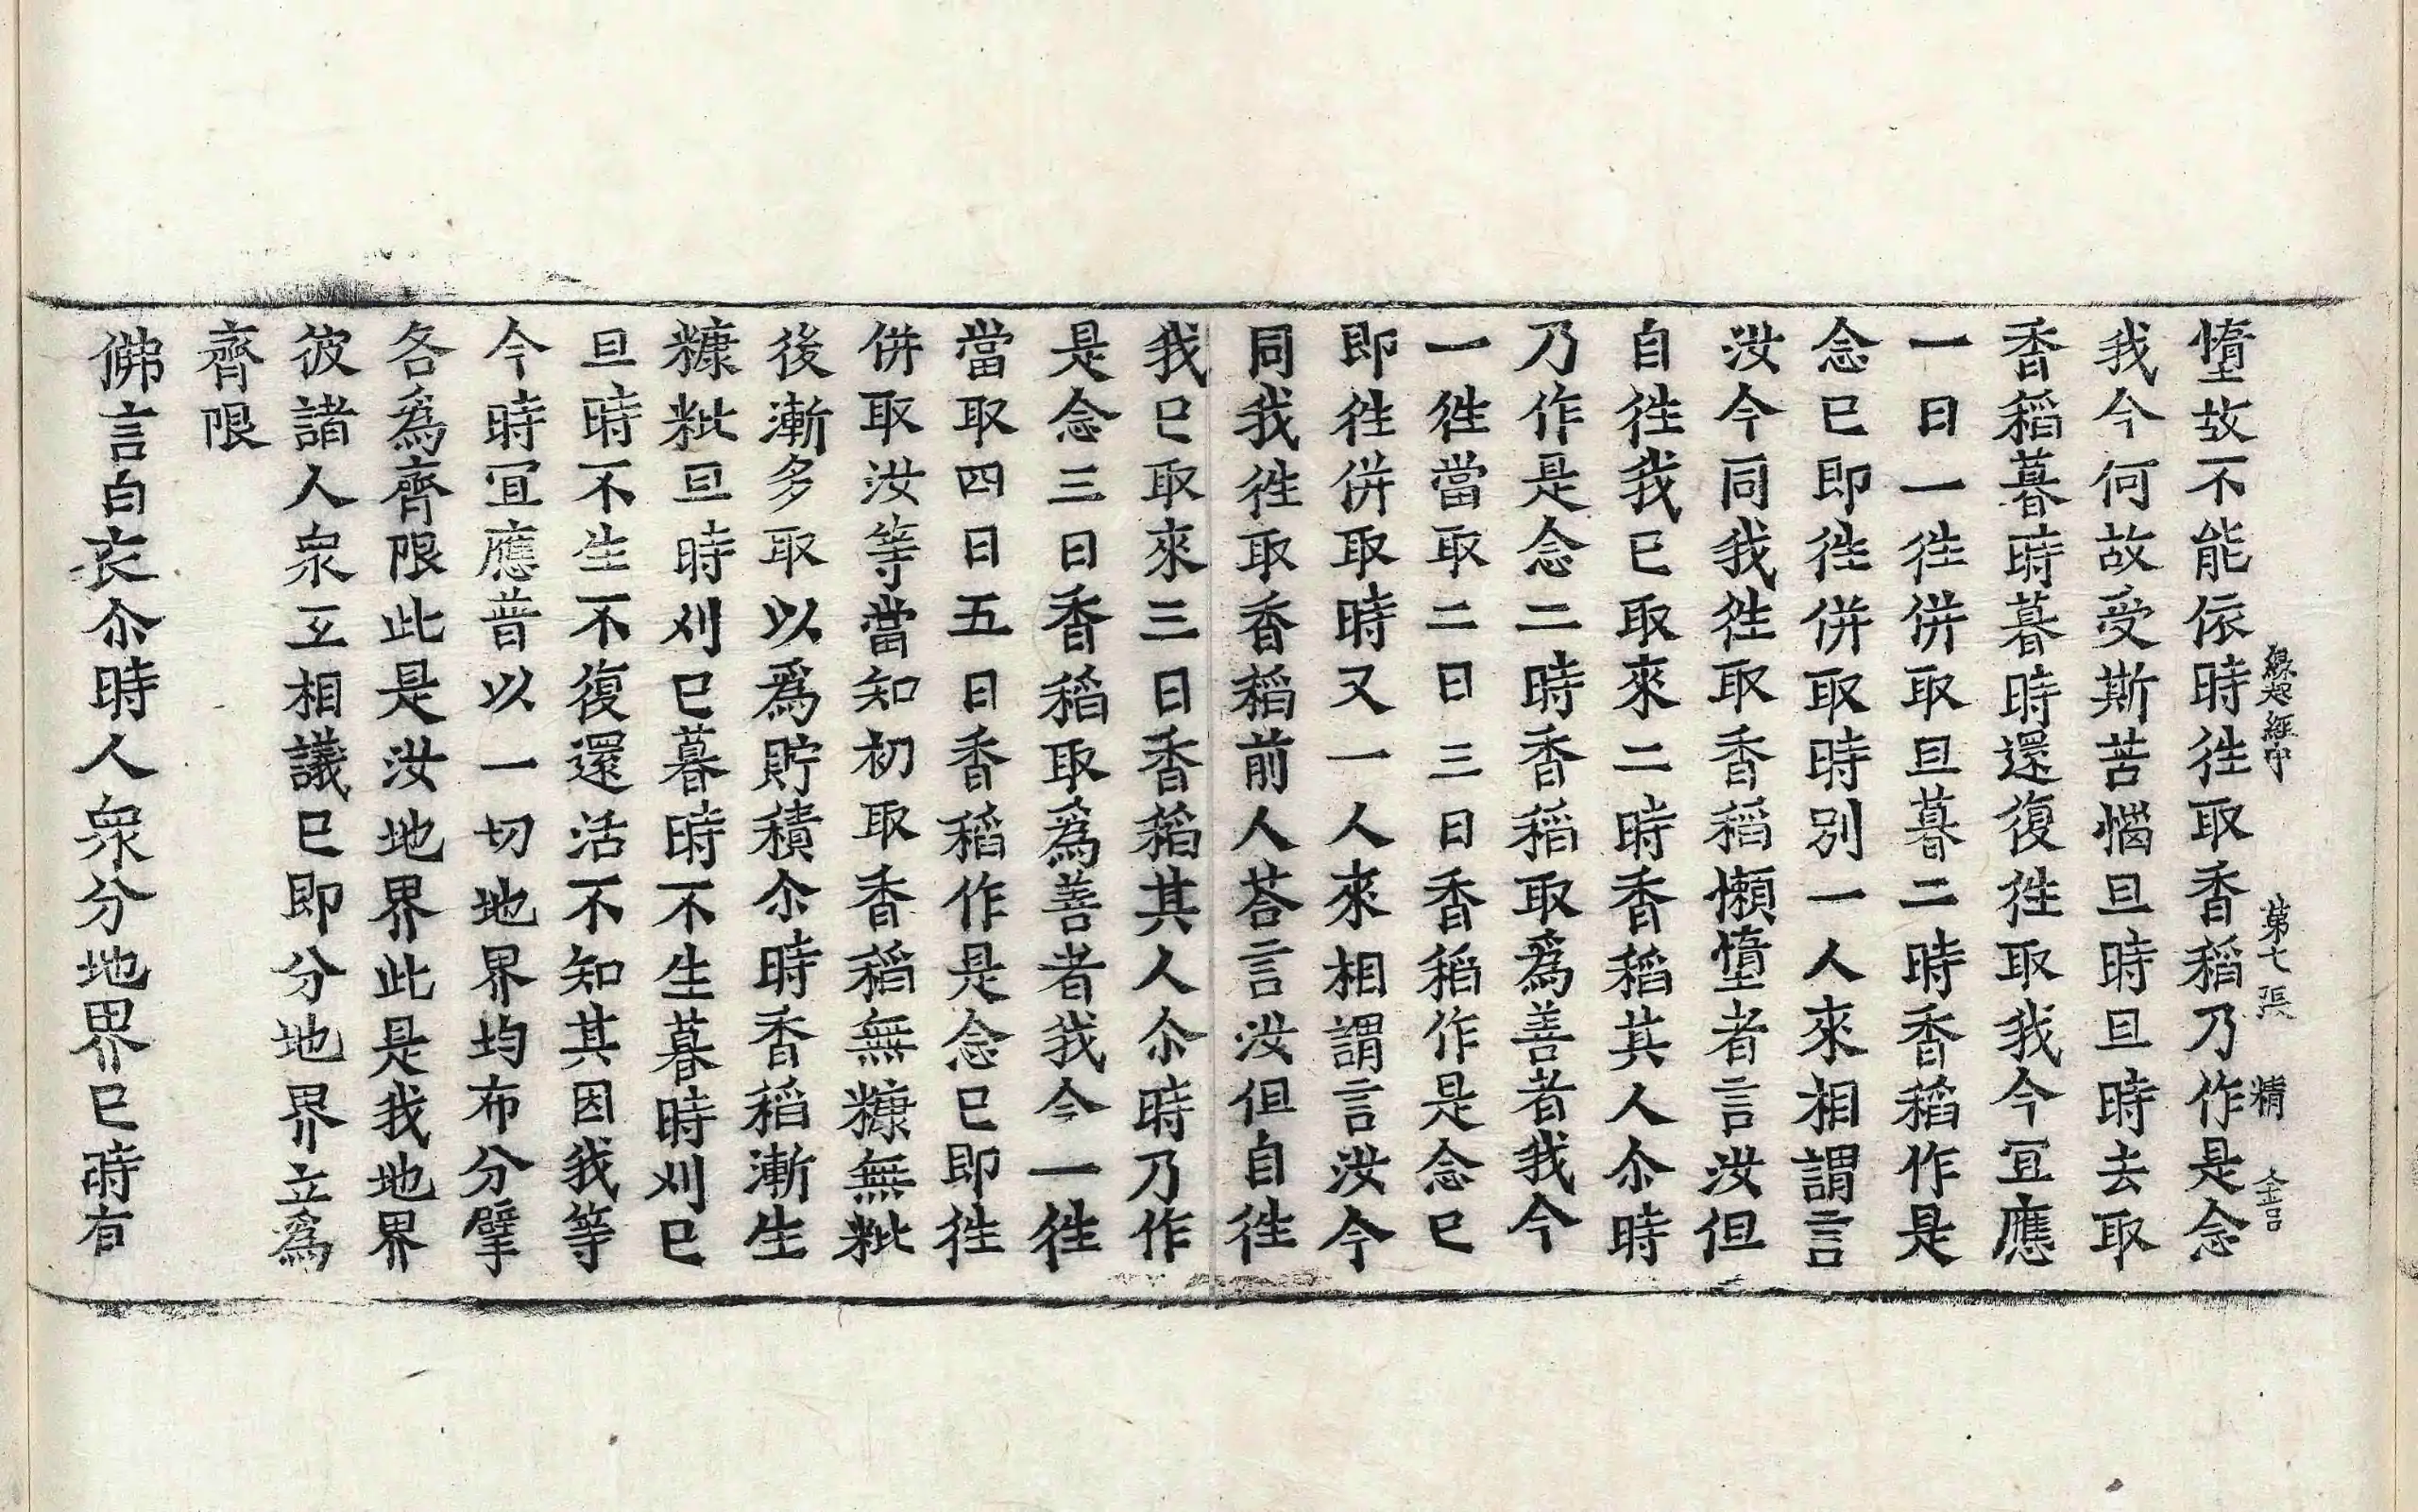 緣起經中 第七張 精 金吕
惰故不能依時往取香稻乃作是念
我今何故受斯苦惱旦時旦時去取
香稻暮時暮時還復往取我今冝應
一日一往併取旦暮二時香稻作是
念已即往併取時別一人來相謂言
汝今同我往取香稻懶惰者言汝但
自往我已取來二時香稻其人尒時
乃作是念二時香稻取為善者我今
一往當取二日三日香稻作是念已
即往併取時又一人來相謂言汝今
同我往取香稻前人荅言汝但自往
我已取來三日香稻其人尒時乃作
是念三日香稻取為善者我今一往
當取四日五日香稻作是念已即往
併取汝等當知初取香稻無糠無粃
後漸多取以為貯積尒時香稻漸生
糠粃旦時刈已暮時不生暮時刈已
旦時不生不復還活不知其因我等
今時冝應普以一切地界均布分擘
各為齊限此是汝地界此是我地界
彼諸人衆互相議已即分地界立為
齊限
佛言白衣尒時人衆分地界已時有